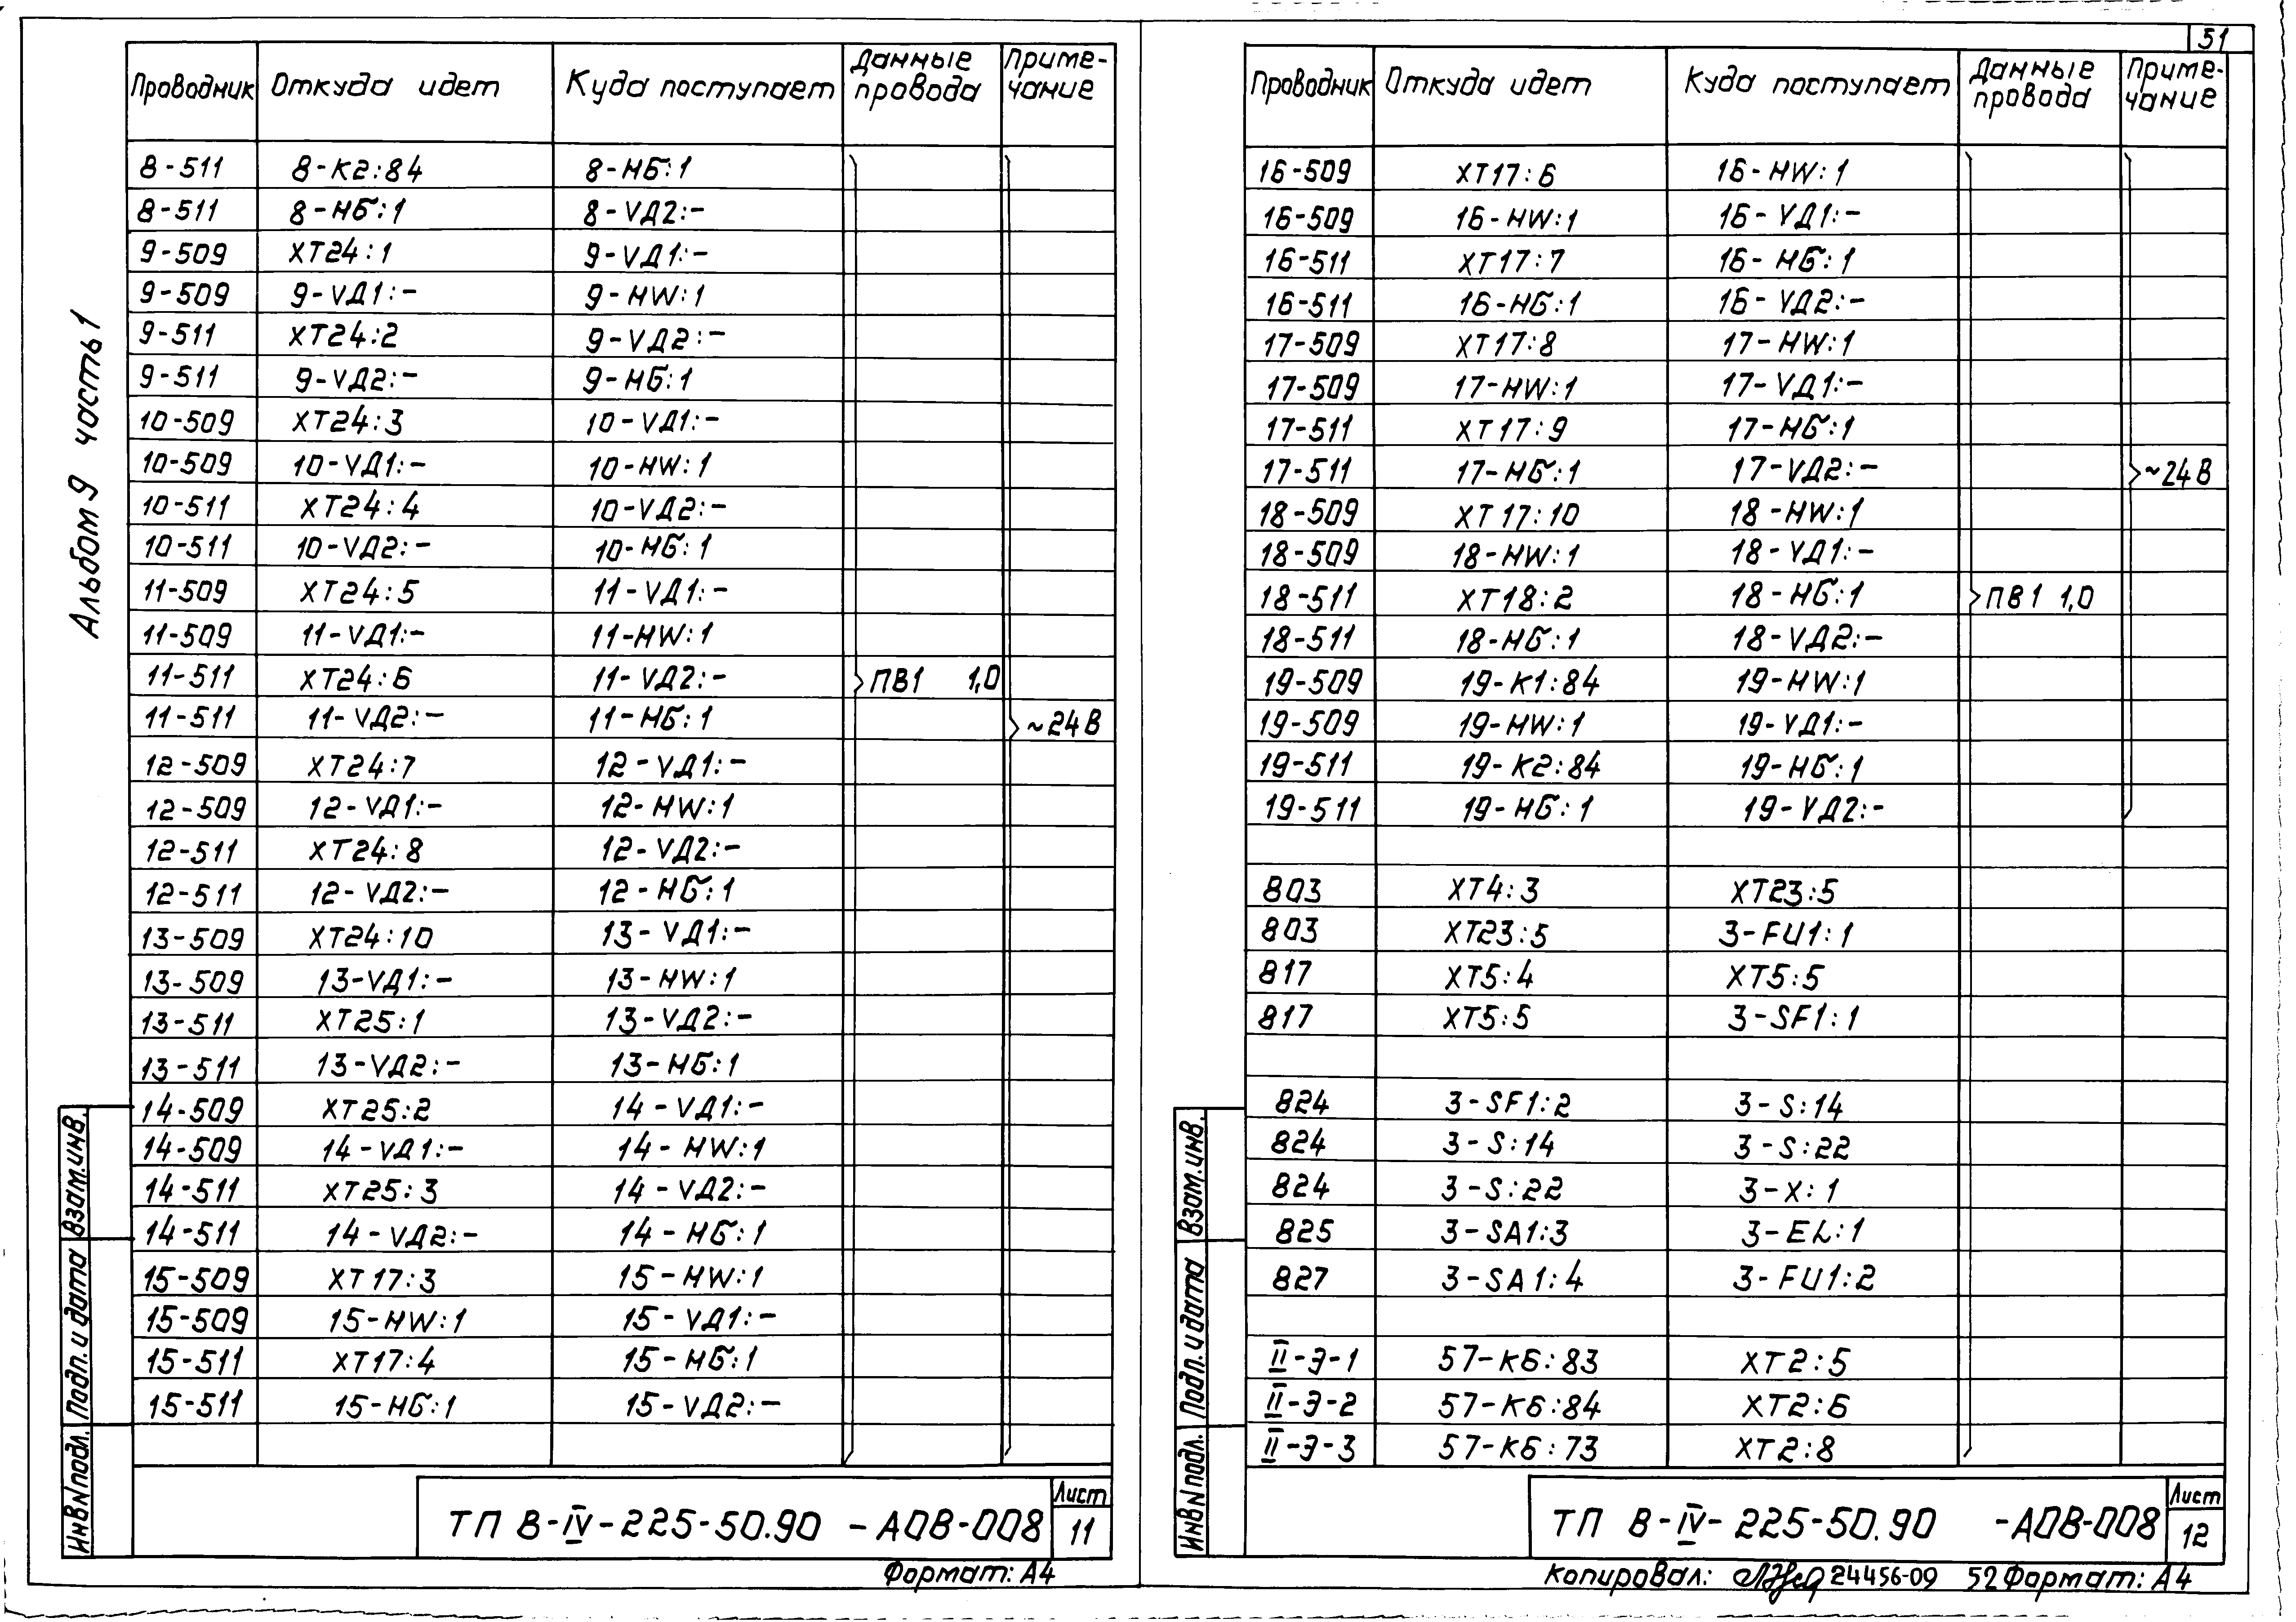 Альбом 9 часть 1
Проводник Откуда идет Куда поступает Данные провода Приме-чание
8-511 8-К2:84 8-НБ:1
8-511 8-НБ:1 8-VД2:-
9-509 ХТ24:1 9-VД1:-
9-509 9-VД1:- 9-HW:1
9-511 ХТ24:2 9-VД2:-
9-511 9-VД2:- 9-НБ:1
10-509 ХТ24:3 10-VД1:-
10-509 10-VД1:- 10-HW:1
10-511 ХТ24:4 10-VД2:-
10-511 10-VД2:- 10-НБ:1
11-509 ХТ24:5 11-VД1:-
11-509 11-VД1:- 11-HW:1
11-511 ХТ24:6 11-VД2:- ПВ1 1,0
11-511 11-VД2:- 11-НБ:1 ~24В
12-509 ХТ24:7 12-VД1:-
12-509 12-VД1:- 12-HW:1
12-511 ХТ24:8 12-VД2:-
12-511 12-VД2:- 12-НБ:1
13-509 ХТ24:10 13-VД1:-
13-509 13-VД1:- 13-HW:1
13-511 ХТ25:1 13-VД2:-
13-511 13-VД2:- 13-НБ:1
14-509 ХТ25:2 14-VД1:-
14-509 14-VД1:- 14-HW:1
14-511 ХТ25:3 14-VД2:-
14-511 14-VД2:- 14-НБ:1
15-509 ХТ17:3 15-HW:1
15-509 15-HW:1 15-VД1:-
15-511 ХТ17:4 15-НБ:1
15-511 15-НБ:1 15-VД2:-
Взам.инв.
Подп. и дата
Инв N подл.
ТП В-IV-225-50.90 -АОВ-008
Лист
11
Формат: А4
51
Проводник Откуда идет Куда поступает Данные провода Приме-чание
16-509 ХТ17:6 16-HW:1
16-509 16-HW:1 16-VД1:-
16-511 ХТ17:7 16-НБ:1
16-511 16-НБ:1 16-VД2:-
17-509 ХТ17:8 17-HW:1
17-509 17-HW:1 17-VД1:-
17-511 ХТ17:9 17-НБ:1
17-511 17-НБ:1 17-VД2:- ~24В
18-509 ХТ17:10 18-HW:1
18-509 18-HW:1 18-VД1:-
18-511 ХТ18:2 18-НБ:1 ПВ1 1,0
18-511 18-НБ:1 18-VД2:-
19-509 19-К1:84 19-HW:1
19-509 19-HW:1 19-VД1:-
19-511 19-К2:84 19-НБ:1
19-511 19-НБ:1 19-VД2:-
803 ХТ4:3 ХТ23:5
803 ХТ23:5 3-FU1:1
817 ХТ5:4 ХТ5:5
817 ХТ5:5 3-SF1:1
824 3-SF1:2 3-S:14
824 3-S:14 3-S:22
824 3-S:22 3-Х:1
825 3-SA1:3 3-EL:1
827 3-SA1:4 3-FU1:2
II-Э-1 57-К6:83 ХТ2:5
II-Э-2 57-К6:84 ХТ2:6
II-Э-3 57-К6:73 ХТ2:8
Взам.инв.
Подп. и дата
Инв N подл.
ТП В-IV-225-50.90 -АОВ-008
Лист
12
Копировал: 24456-09 52 Формат: А4